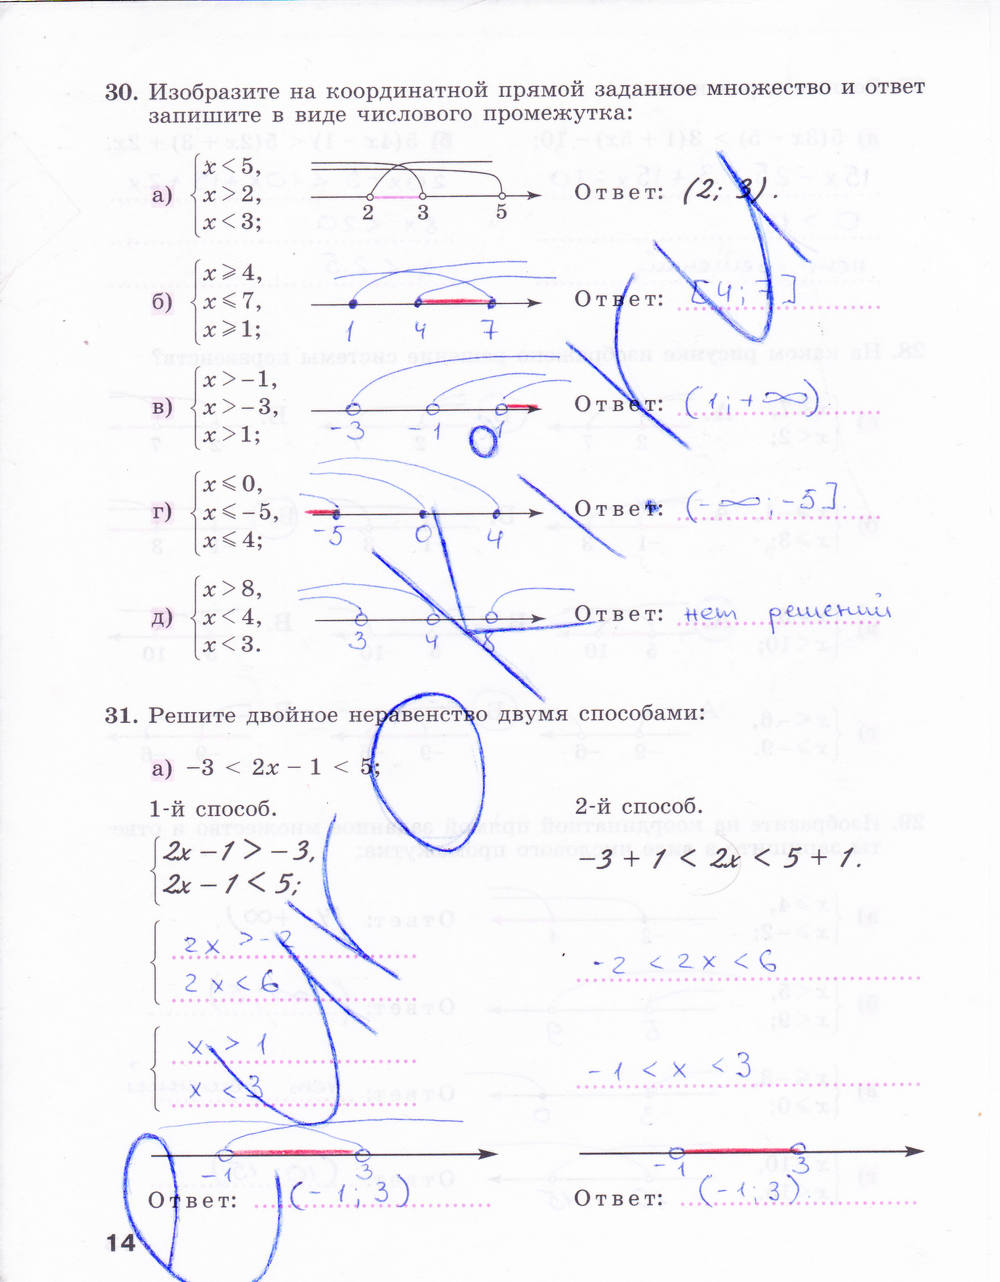 30. Изобразите на координатной прямой заданное множество и ответ
запишите в виде числового промежутка:
а) { x < 5,
x > 2,
x < 3;
2 3 5
Ответ: (2; 3).
б) { x ⩾ 4,
x ⩽ 7,
x ⩾ 1;
1 4 7
Ответ: [4; 7]
в) { x > −1,
x > −3,
x > 1;
-3 -1 1
Ответ: (1; +∞)
г) { x ⩽ 0,
x ⩽ −5,
x ⩽ 4;
-5 0 4
Ответ: (-∞; -5].
д) { x > 8,
x < 4,
x < 3.
3 4 8
Ответ: нет решений
31. Решите двойное неравенство двумя способами:
а) −3 < 2x − 1 < 5;
1-й способ.
{ 2x − 1 > −3,
2x − 1 < 5;
{ 2x > -2
2x < 6
{ x > 1
x < 3
-1 3
Ответ: (-1; 3)
2-й способ.
−3 + 1 < 2x < 5 + 1.
-2 < 2x < 6
-1 < x < 3
-1 3
Ответ: (-1; 3).
14